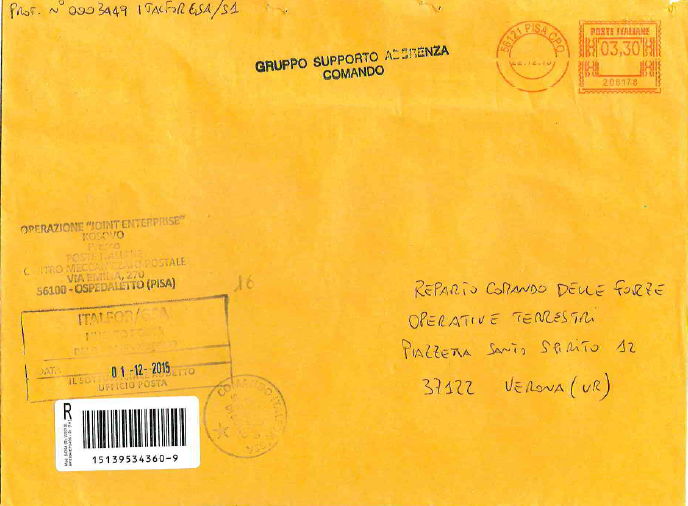 PROT. N° 0003449 ITALFORESA/S1
GRUPPO SUPPORTO ADERENZA
COMANDO
56121 PISA CPO
22.12.15
POSTE ITALIANE
03,30
208178
OPERAZIONE "JOINT ENTERPRISE"
KOSOVO
Presso
POSTE ITALIANE
CENTRO MECCANIZZATO POSTALE
VIA EMILIA, 270
56100 - OSPEDALETTO (PISA)
16
REPARTO COMANDO DELLE FORZE
OPERATIVE TERRESTRI
PIAZZETTA SANTO SPIRITO 12
37122 VERONA (VR)
ITALFOR/
DATA 01-12-2015
UFFICIO POSTA
R
15139534360-9